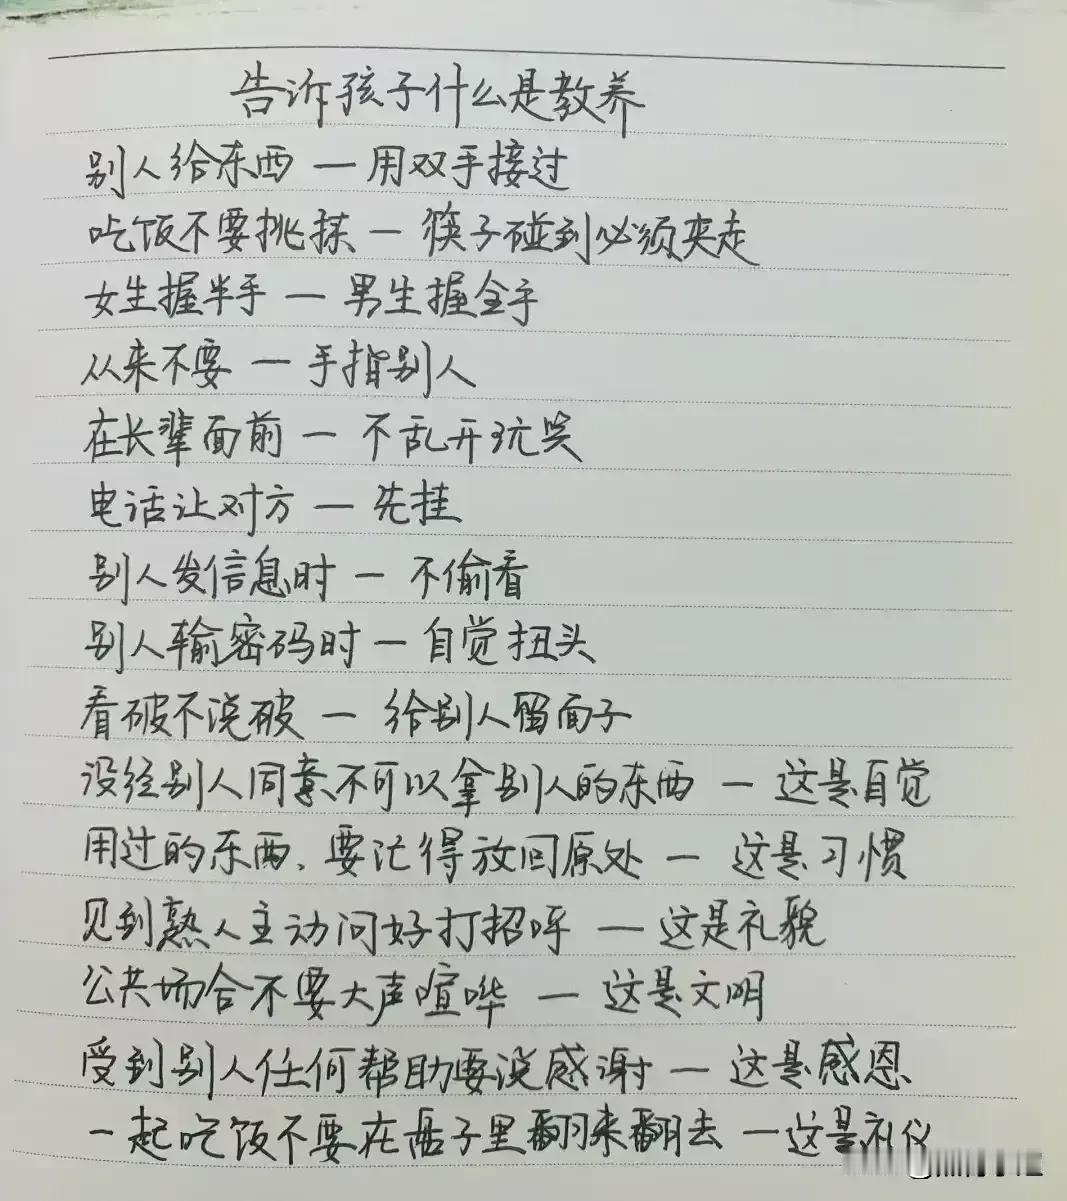 告诉孩子什么是教养
别人给东西 — 用双手接过
吃饭不要挑拣 — 筷子碰到必须夹走
女生握半手 — 男生握全手
从来不要 — 手指别人
在长辈面前 — 不乱开玩笑
电话让对方 — 先挂
别人发信息时 — 不偷看
别人输密码时 — 自觉扭头
看破不说破 — 给别人留面子
没经别人同意不可以拿别人的东西 — 这是自觉
用过的东西、要记得放回原处 — 这是习惯
见到熟人主动问好打招呼 — 这是礼貌
公共场合不要大声喧哗 — 这是文明
受到别人任何帮助要说感谢 — 这是感恩
一起吃饭不要在盘子里翻来翻去 — 这是礼仪